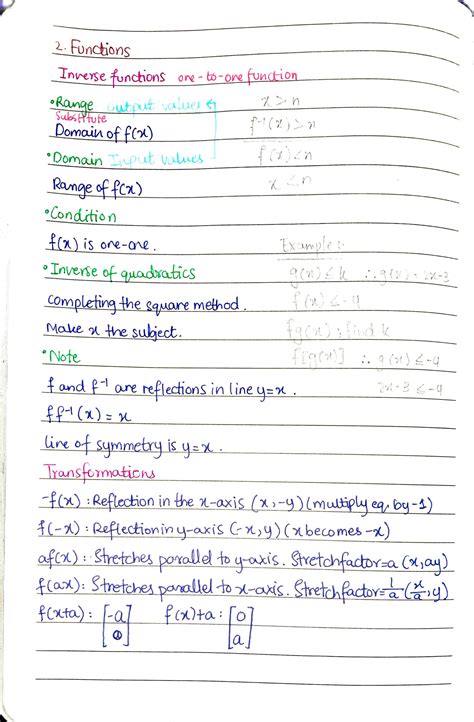 2. Functions
Inverse functions one-to-one function
•Range Output values x > n
Substitute
Domain of f(x) f⁻¹(x) > n
•Domain Input values f(x) < n
Range of f(x) x < n
•Condition
f(x) is one-one. Example:
•Inverse of quadratics g(x) ≤ k ∴ g(x) = 2x-3
completing the square method. f(x) ≤ -4
Make x the subject. fg(x) ; find k
•Note f[g(x)] ∴ g(x) ≤ -4
f and f⁻¹ are reflections in line y=x. 2x-3 ≤ -4
ff⁻¹(x) = x
line of symmetry is y=x.
Transformations
-f(x) : Reflection in the x-axis (x,-y) (multiply eq, by -1)
f(-x) : Reflection in y-axis (-x,y) (x becomes -x)
af(x) : Stretches parallel to y-axis. Stretch factor=a (x,ay)
f(ax) : Stretches parallel to x-axis. Stretch factor=1/a (x/a,y)
f(x+a) : [-a 0] f(x)+a : [0 a]